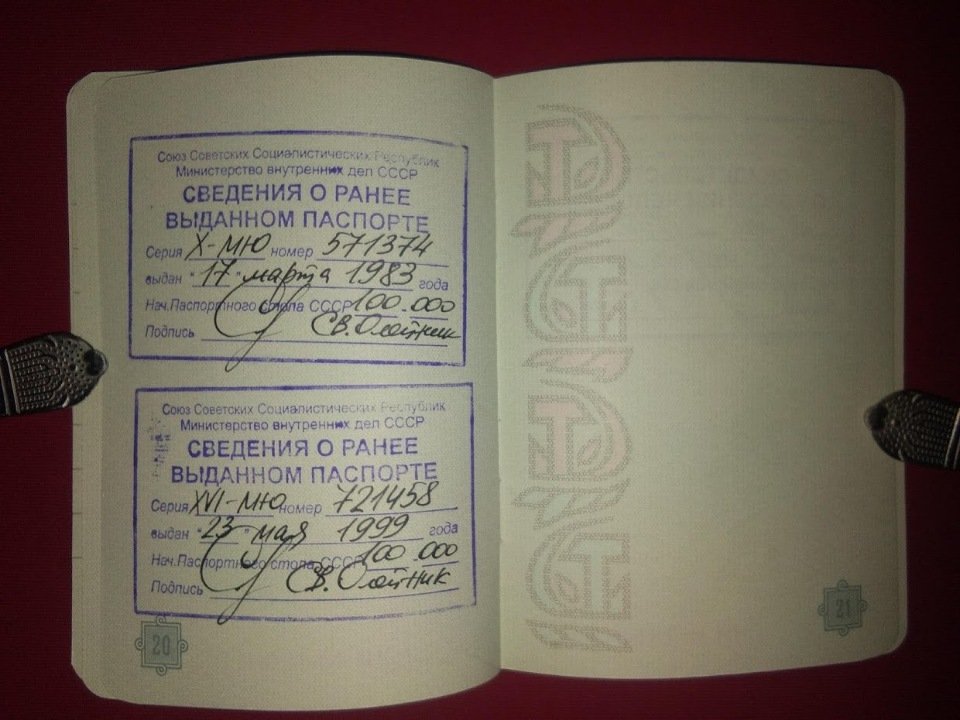 Союз Советских Социалистических Республик
Министерство внутренних дел СССР
СВЕДЕНИЯ О РАНЕЕ
ВЫДАННОМ ПАСПОРТЕ
Серия X-МЮ номер 571374
выдан "17" марта 1983 года
Нач.Паспортного стола СССР 100.000
Подпись
Союз Советских Социалистических Республик
Министерство внутренних дел СССР
СВЕДЕНИЯ О РАНЕЕ
ВЫДАННОМ ПАСПОРТЕ
Серия XVI-МЮ номер 721458
выдан "23" мая 1999 года
Нач.Паспортного стола СССР 100.000
Подпись
20
21